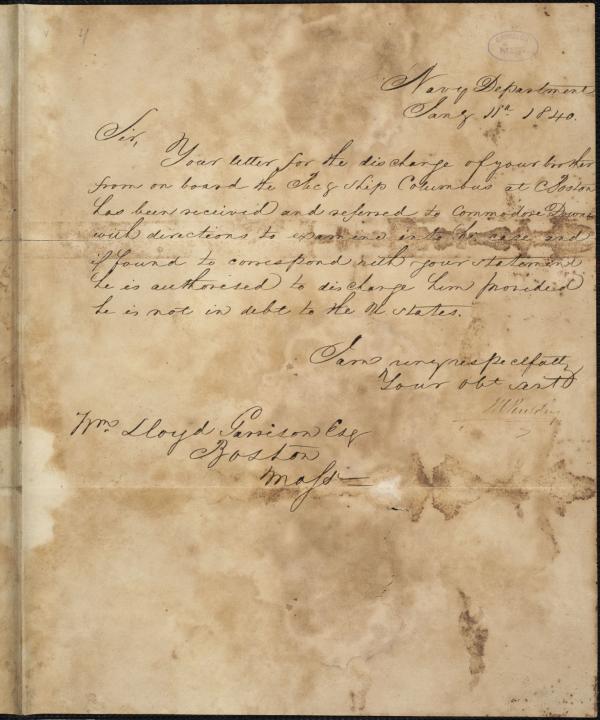 4
Navy Department
Jany 11th 1840.
Sir,
Your letter for the discharge of your brother
from on board the Recg ship Columbus at Boston
has been received and referred to Commodore Downes
with directions to examine into his case and
if found to correspond with your statement
he is authorised to discharge him provided
he is not in debt to the U States.
I am very respectfully
Your obt servt
Wm Lloyd Garrison Esq
Boston
Mass